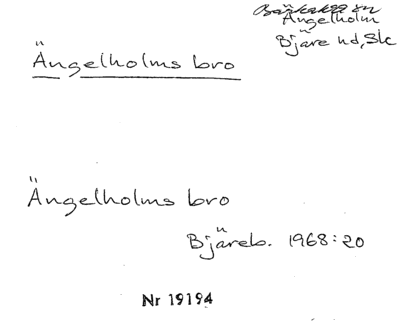 Ängelholm
Bjäre hd, Sk
Ängelholms bro
Ängelholms bro
Bjäreb. 1968:20
Nr 19194